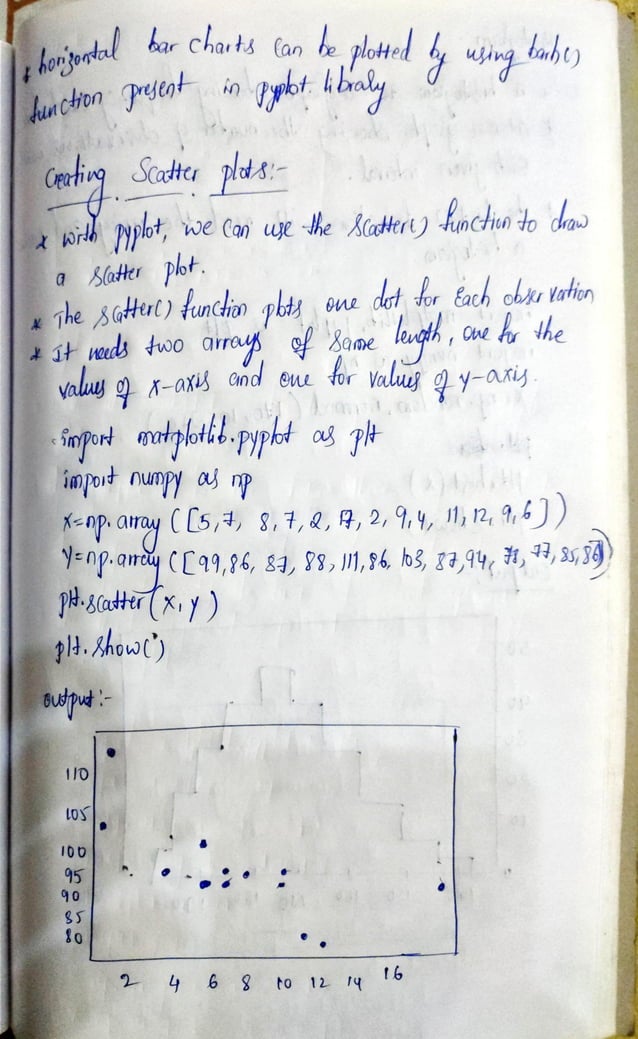 * horizontal bar charts can be plotted by using barh()
function present in pyplot library
Creating Scatter plots:-
* with pyplot, we can use the scatter() function to draw
a scatter plot.
* The scatter() function plots one dot for Each observation
* It needs two arrays of same length, one for the
values of x-axis and one for values of y-axis.
import matplotlib.pyplot as plt
import numpy as np
x=np.array([5,7, 8,7,2,17,2,9,4,11,12,9,6])
y=np.array([99,86,87,88,111,86,103,87,94,78,77,85,86])
plt.scatter(x,y)
plt.show()
output:-
110
105
100
95
90
85
80
2 4 6 8 10 12 14 16